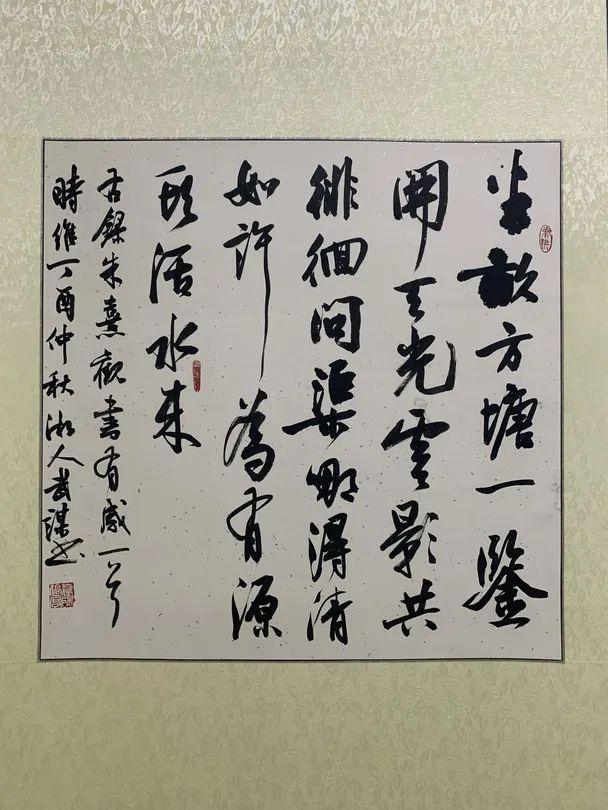 半畝方塘一鑒
開天光雲影共
徘徊問渠那得清
如許為有源
頭活水來
右錄朱熹觀書有感一首
時維丁酉仲秋湘人武謀書